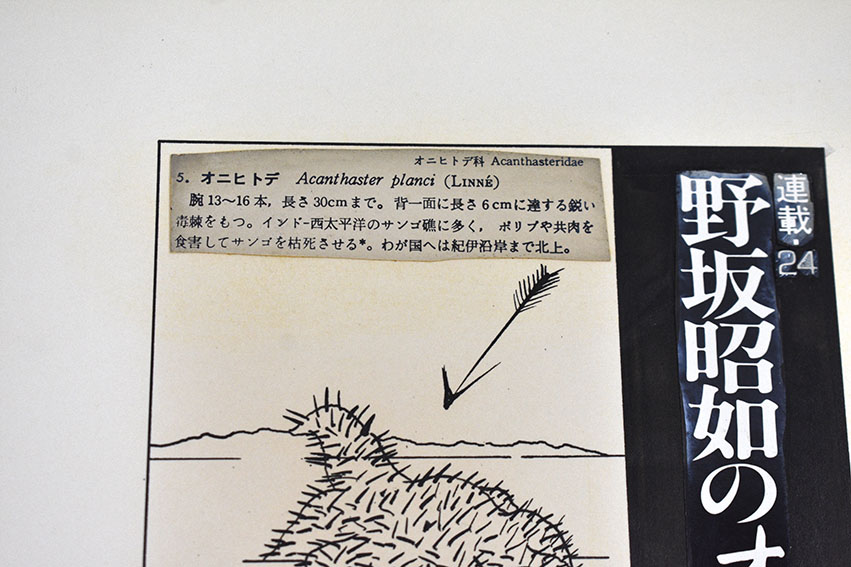 連載・24
野坂昭如のオ
オニヒトデ科 Acanthasteridae
5. オニヒトデ Acanthaster planci (LINNÉ)
腕13〜16本,長さ30cmまで。背一面に長さ6cmに達する鋭い
毒棘をもつ。インド-西太平洋のサンゴ礁に多く,ポリプや共肉を
食害してサンゴを枯死させる*。わが国へは紀伊沿岸まで北上。